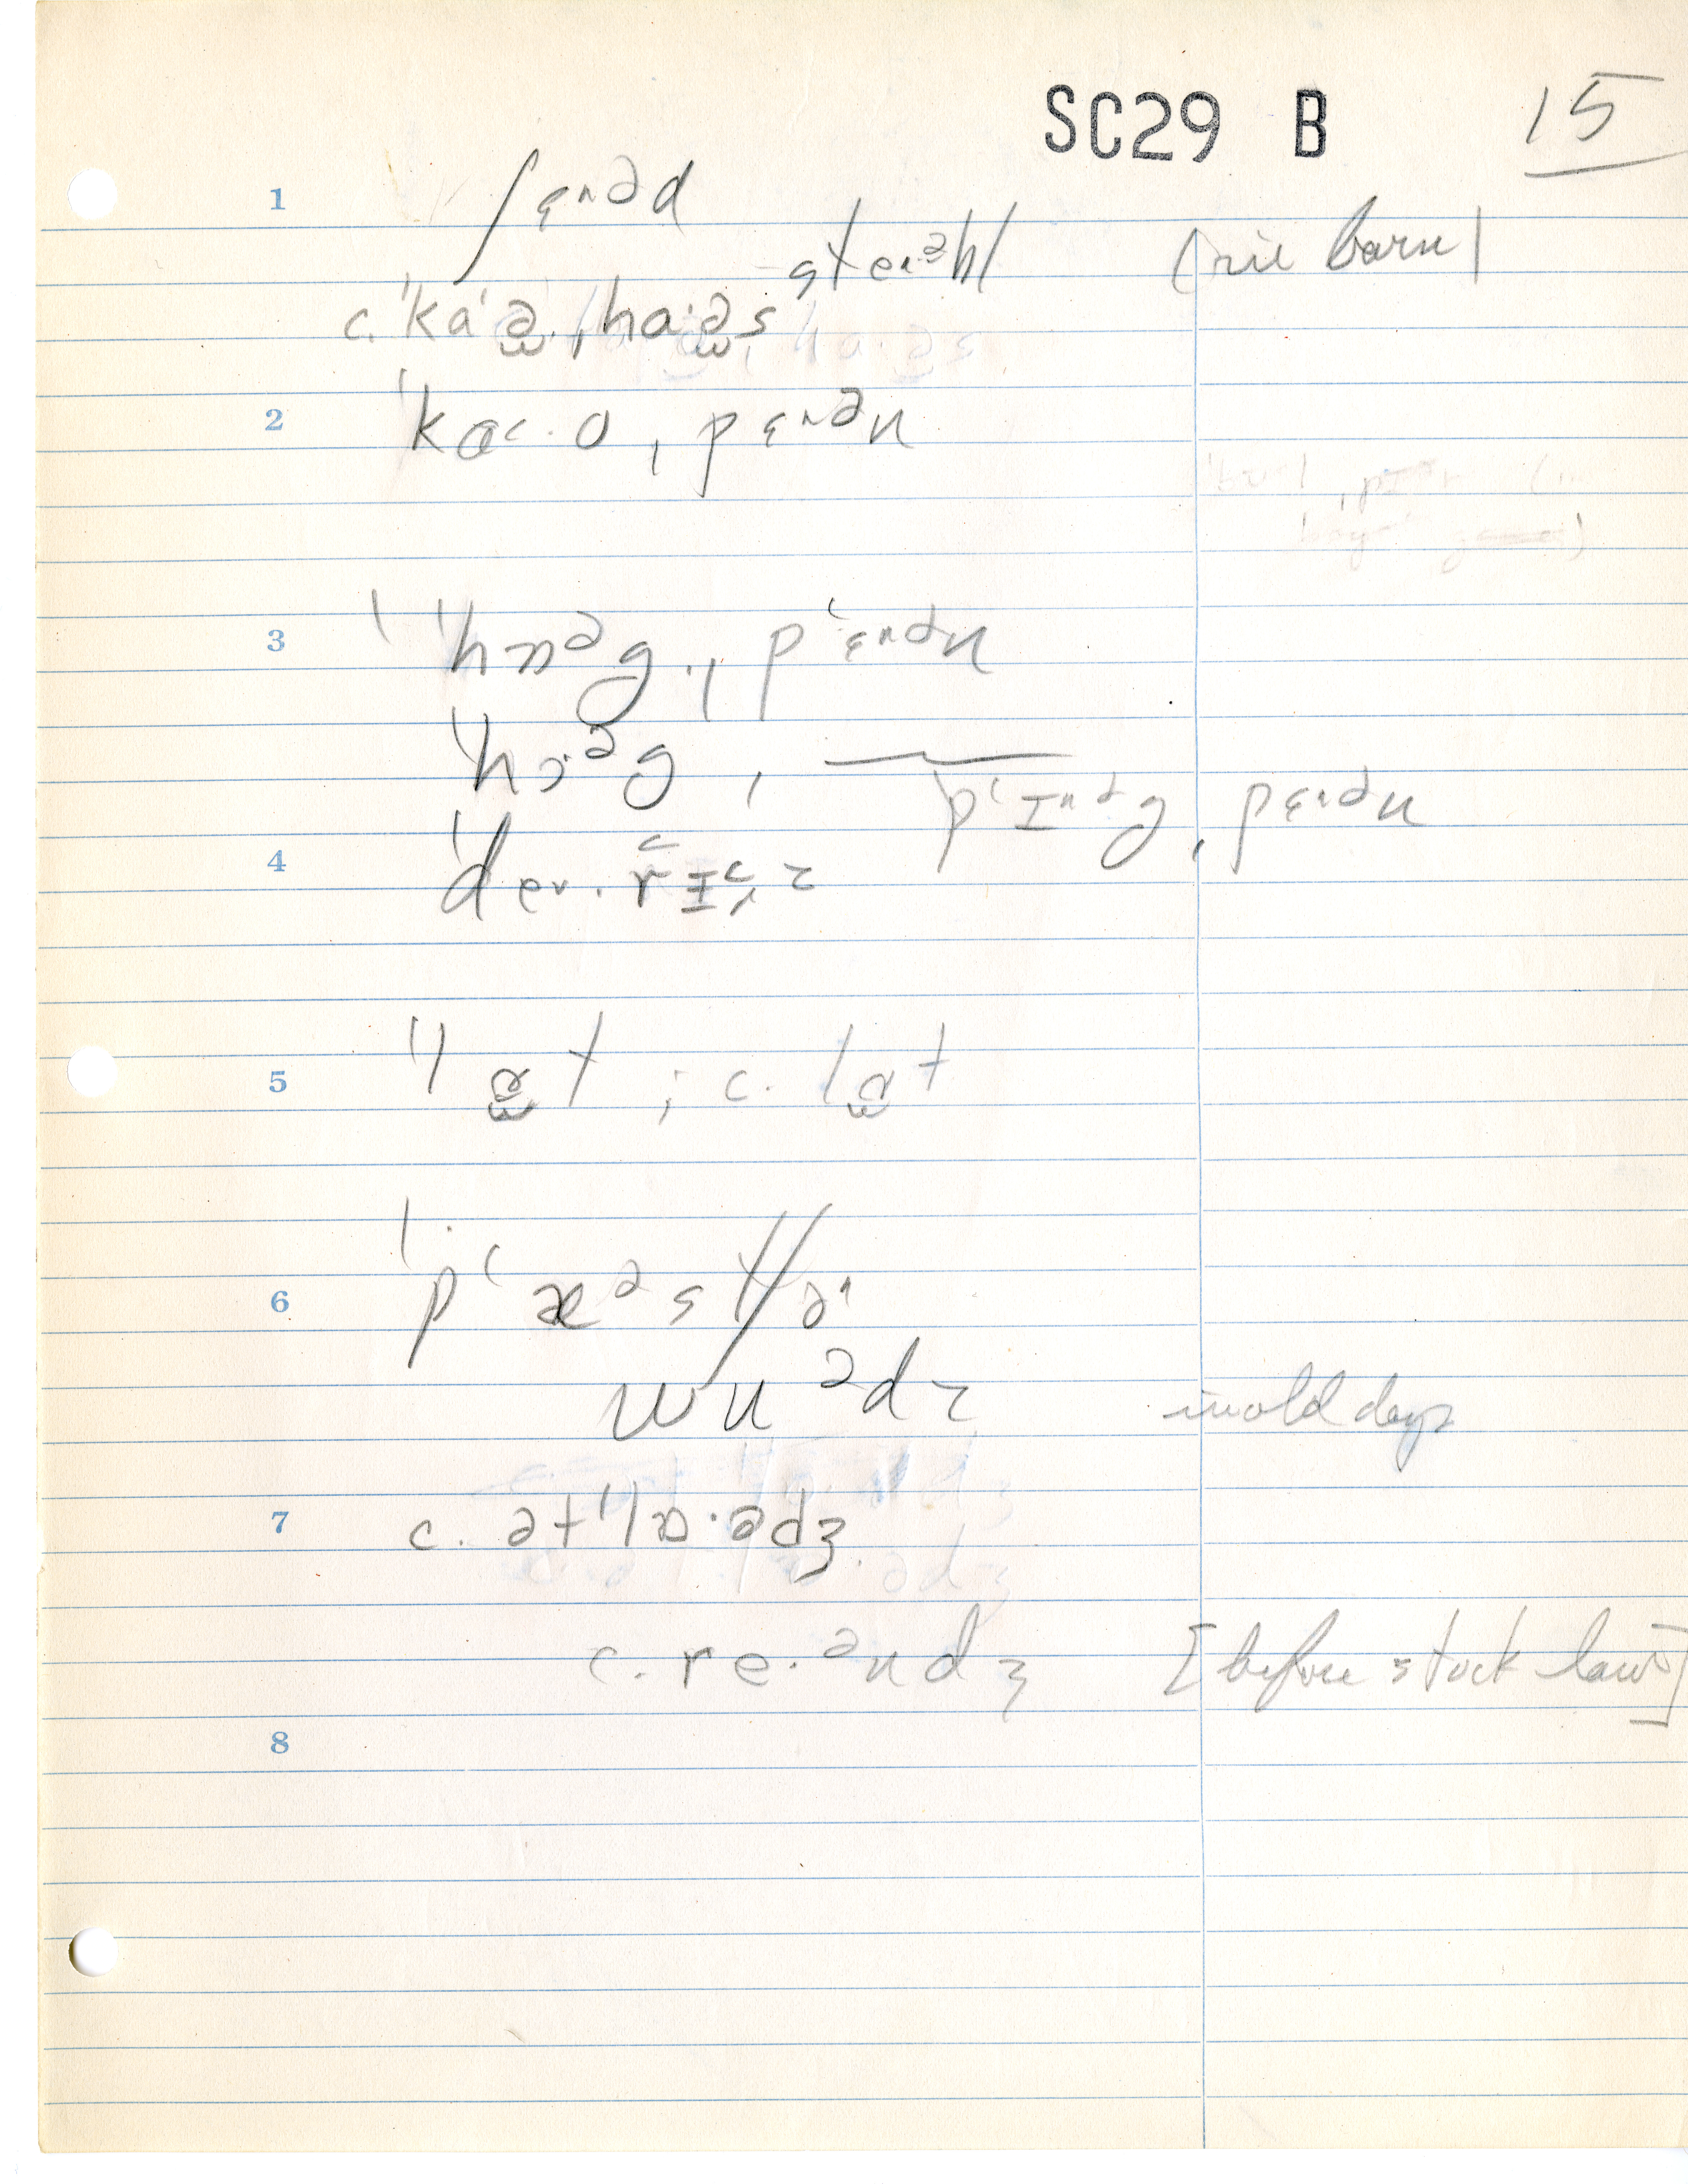 SC29 B 15
1 ʃɛ˄ᵊd
ste˄ᵊbl (in barn)
c. ˈkaˈə̯ˌha·ə̯s
2 ˈkɑ˂·oˌpɛ˄ᵊn
3 ˈhɒᵊg·ˌpʻɛ˄ᵊn
ˈhɔ·ᵊgˌ pʻɪ˄ᵊg, pɛ˄ᵊn
4 ˈde˅·rɪ˂z
5 ˈlɑt ; c. lɑt
6 ˈpʻæᵊstʃɚ
wuᵊdz in old days
7 c. ətˈlɒ·ədʒ
c. re·ᵊndʒ [before stock law]
8